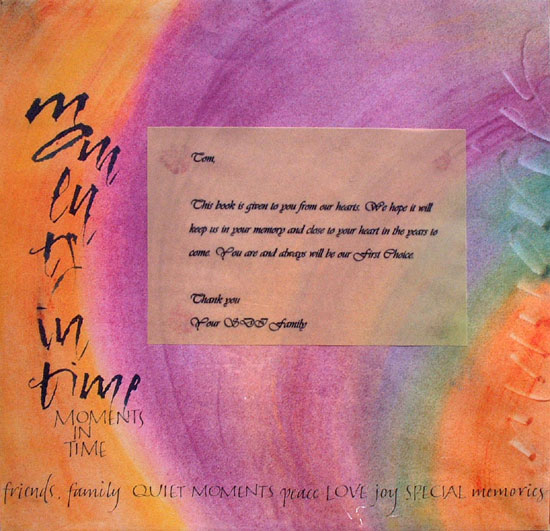 moments
in
time
MOMENTS
IN
TIME
Tom,
This book is given to you from our hearts. We hope it will
keep us in your memory and close to your heart in the years to
come. You are and always will be our First Choice.
Thank you
Your SDI Family
friends. family QUIET MOMENTS peace LOVE joy SPECIAL memories